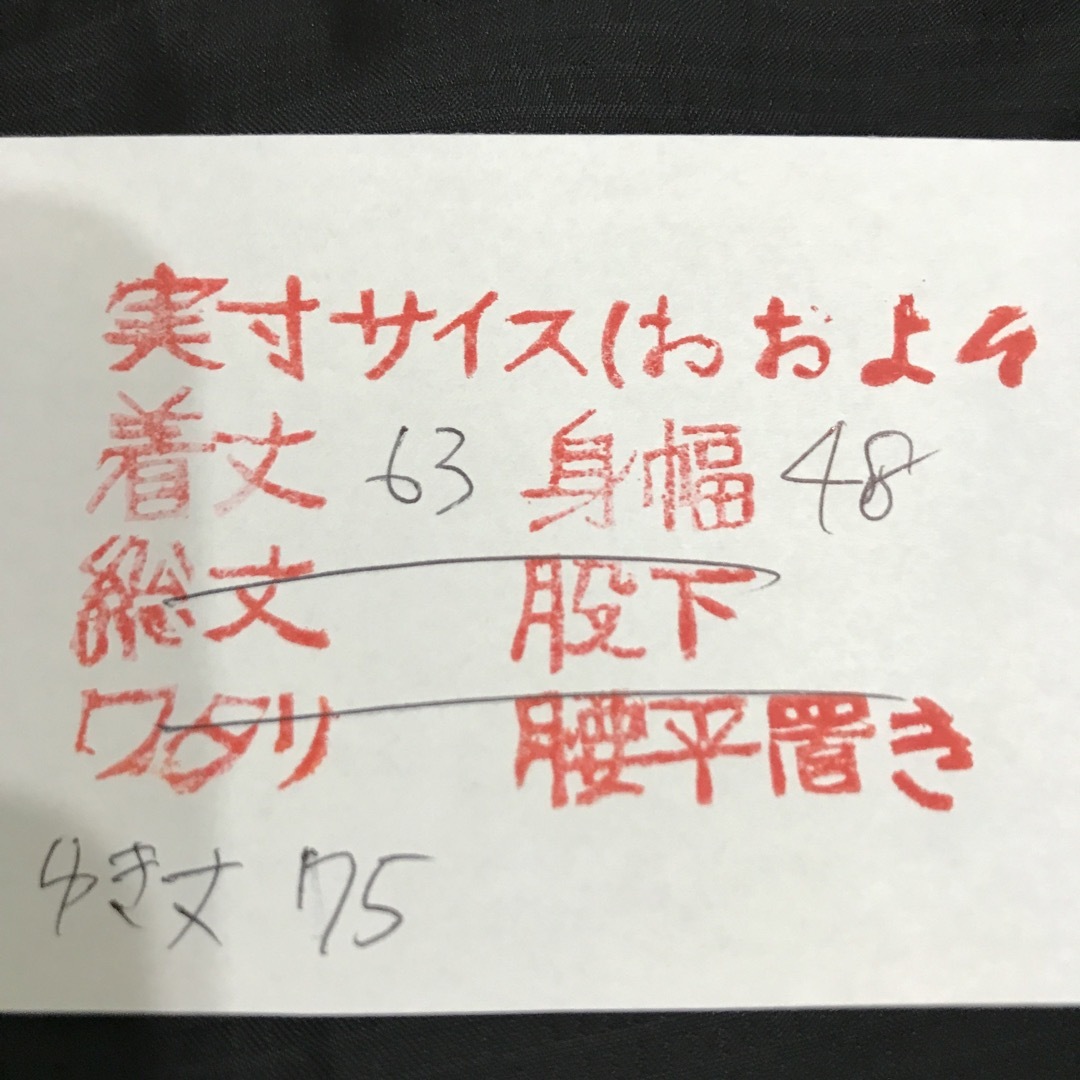 実寸サイズ(おおよそ
着丈 63 身幅 48
総丈 股下
ワタリ 腰平置き
ゆき丈 75